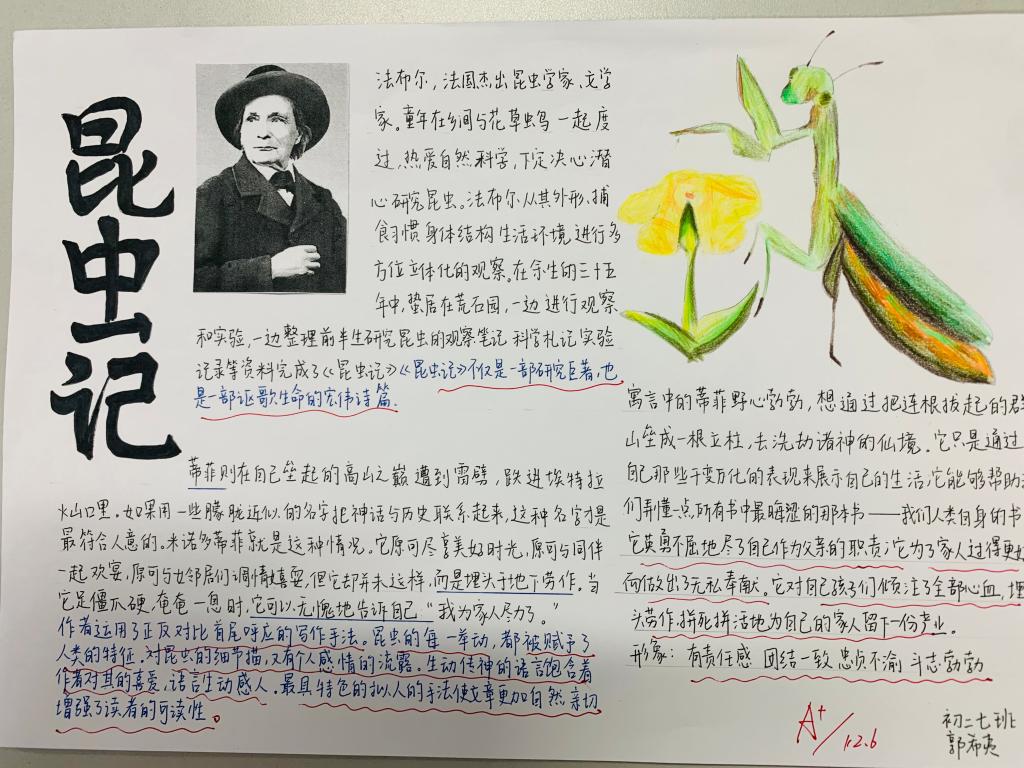 昆虫记
法布尔，法国杰出昆虫学家、文学
家。童年在乡间与花草虫鸟一起度
过，热爱自然科学，下定决心潜
心研究昆虫。法布尔从其外形、捕
食习惯身体结构生活环境，进行多
方位立体化的观察。在余生的三十五
年中，蛰居在荒石园，一边进行观察
和实验，一边整理前半生研究昆虫的观察笔记科学札记实验
记录等资料完成了《昆虫记》《昆虫记》不仅是一部研究巨著，也
是一部讴歌生命的宏伟诗篇.
蒂菲则在自己垒起的高山之巅遭到雷劈，跌进埃特拉
火山口里.如果用一些朦胧近似的名字把神话与历史联系起来，这种名字才是
最符合人意的。米诺多蒂菲就是这种情况。它原可尽享美好时光，原可与同伴
一起欢宴，原可与女邻居们调情嬉耍，但它却并未这样，而是埋头于地下劳作。当
它足僵爪硬，奄奄一息时，它可以无愧地告诉自己“我为家人尽力了。”
作者运用了正反对比首尾呼应的写作手法。昆虫的每一举动，都被赋予了
人类的特征.对昆虫的细节描，又有个人感情的流露.生动传神的语言饱含着
作者对其的喜爱，语言生动感人.最具特色的拟人的手法使文章更加自然亲切
增强了读者的可读性。
寓言中的蒂菲野心勃勃，想通过把连根拔起的群
山垒成一根立柱，去洗劫诸神的仙境.它只是通过
自己那些千变万化的表现来展示自己的生活，它能够帮助
们弄懂一点所有书中最晦涩的那本书——我们人类自身的书
它英勇不屈地尽了自己作为父亲的职责；它为了家人过得更好
而做出了无私奉献。它对自己孩子们倾注了全部心血，埋
头劳作，拼死拼活地为自己的家人留下一份产业.
形象：有责任感 团结一致 忠贞不渝 斗志勃勃
A+/12.6
初二七班
郭希夷